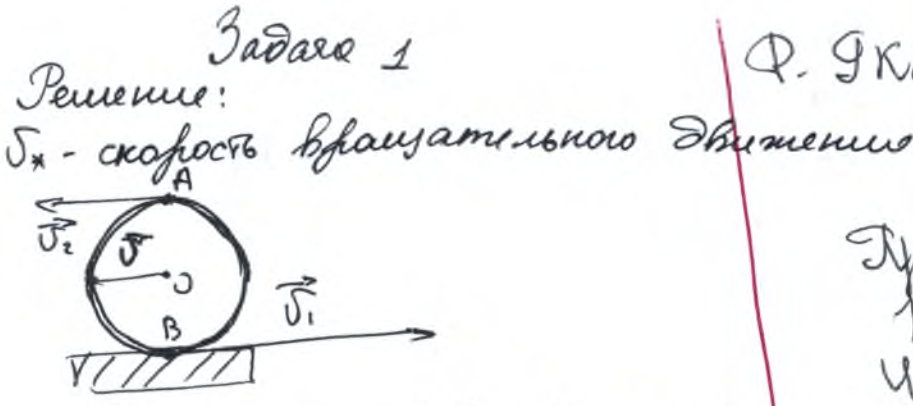 Задача 1
Решение:
υ* - скорость вращательного движения
A
υ₂
υ
O
υ₁
B